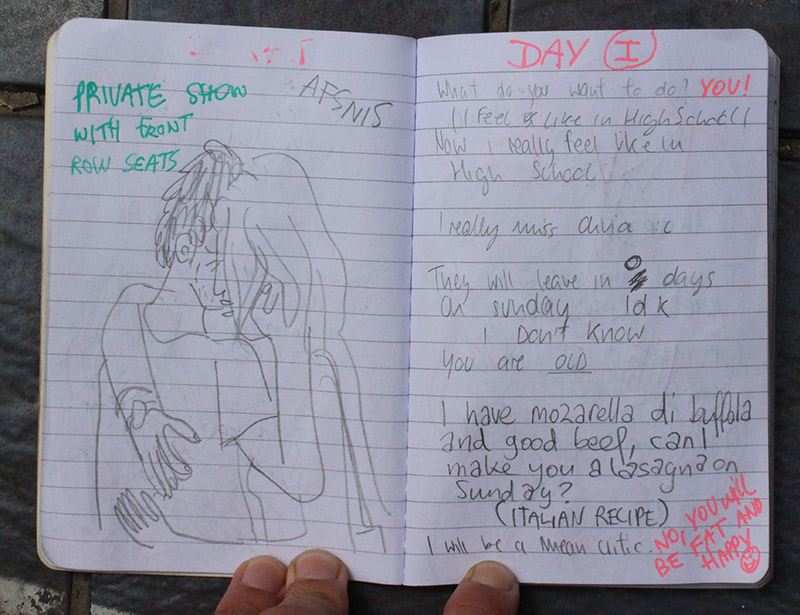 PRIVATE SHOW
WITH FRONT
ROW SEATS
AFSNIS
DAY I
What do you want to do? YOU!
I Feel like in High School
Now i really feel like in
High School
I really miss :c
They will leave in days
On sunday Idk
I Don't Know
You are OLD
I have mozarella di buffola
and good beef, can I
make you a lasagna on
Sunday?
(ITALIAN RECIPE)
I will be a Mean Critic.
NO, YOU WILL
BE FAT AND
HAPPY